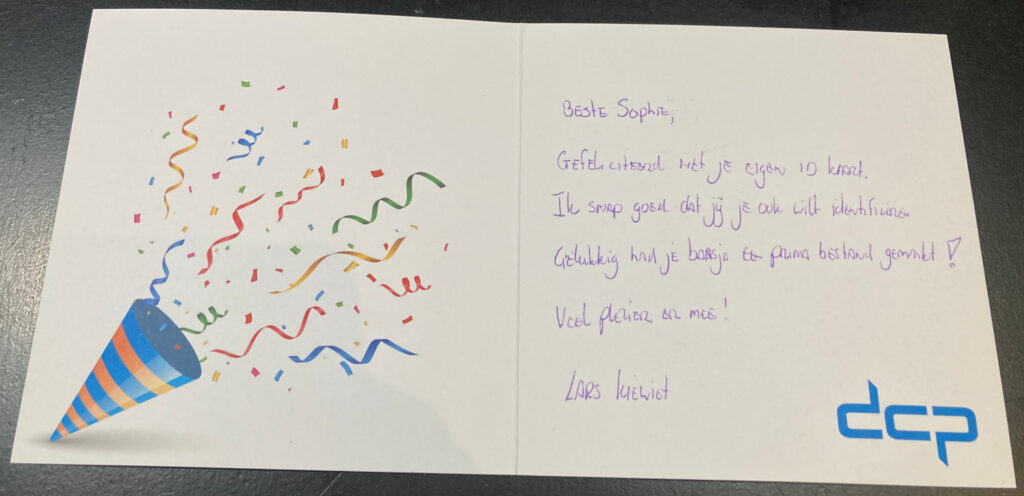 Beste Sophie,
Gefeliciteerd met je eigen ID kaart.
Ik snap goed dat jij je ook wilt identificeren
Gelukkig had je baasje een prima bestand gemaakt!
Veel plezier er mee!
Lars Kiewiet
dcp